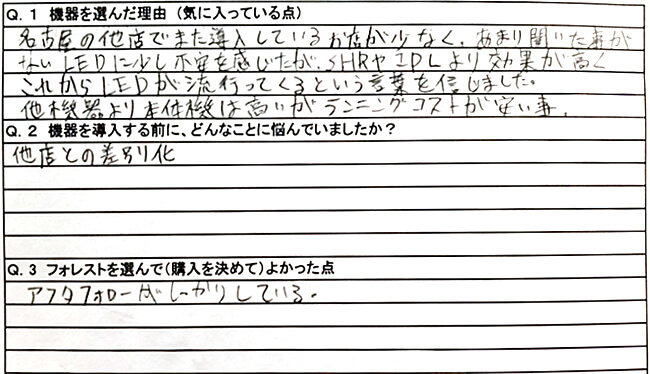 Q. 1 機器を選んだ理由（気に入っている点）
名古屋の他店でまだ導入しているお店が少なく、あまり聞いた事が
ないLEDに少し不安を感じたが、SHRやIPLより効果が高く
これからLEDが流行ってくるという言葉を信じました。
他機器より本体機は高いがランニングコストが安い事。
Q. 2 機器を導入する前に、どんなことに悩んでいましたか？
他店との差別化
Q. 3 フォレストを選んで（購入を決めて）よかった点
アフタフォローがしっかりしている。